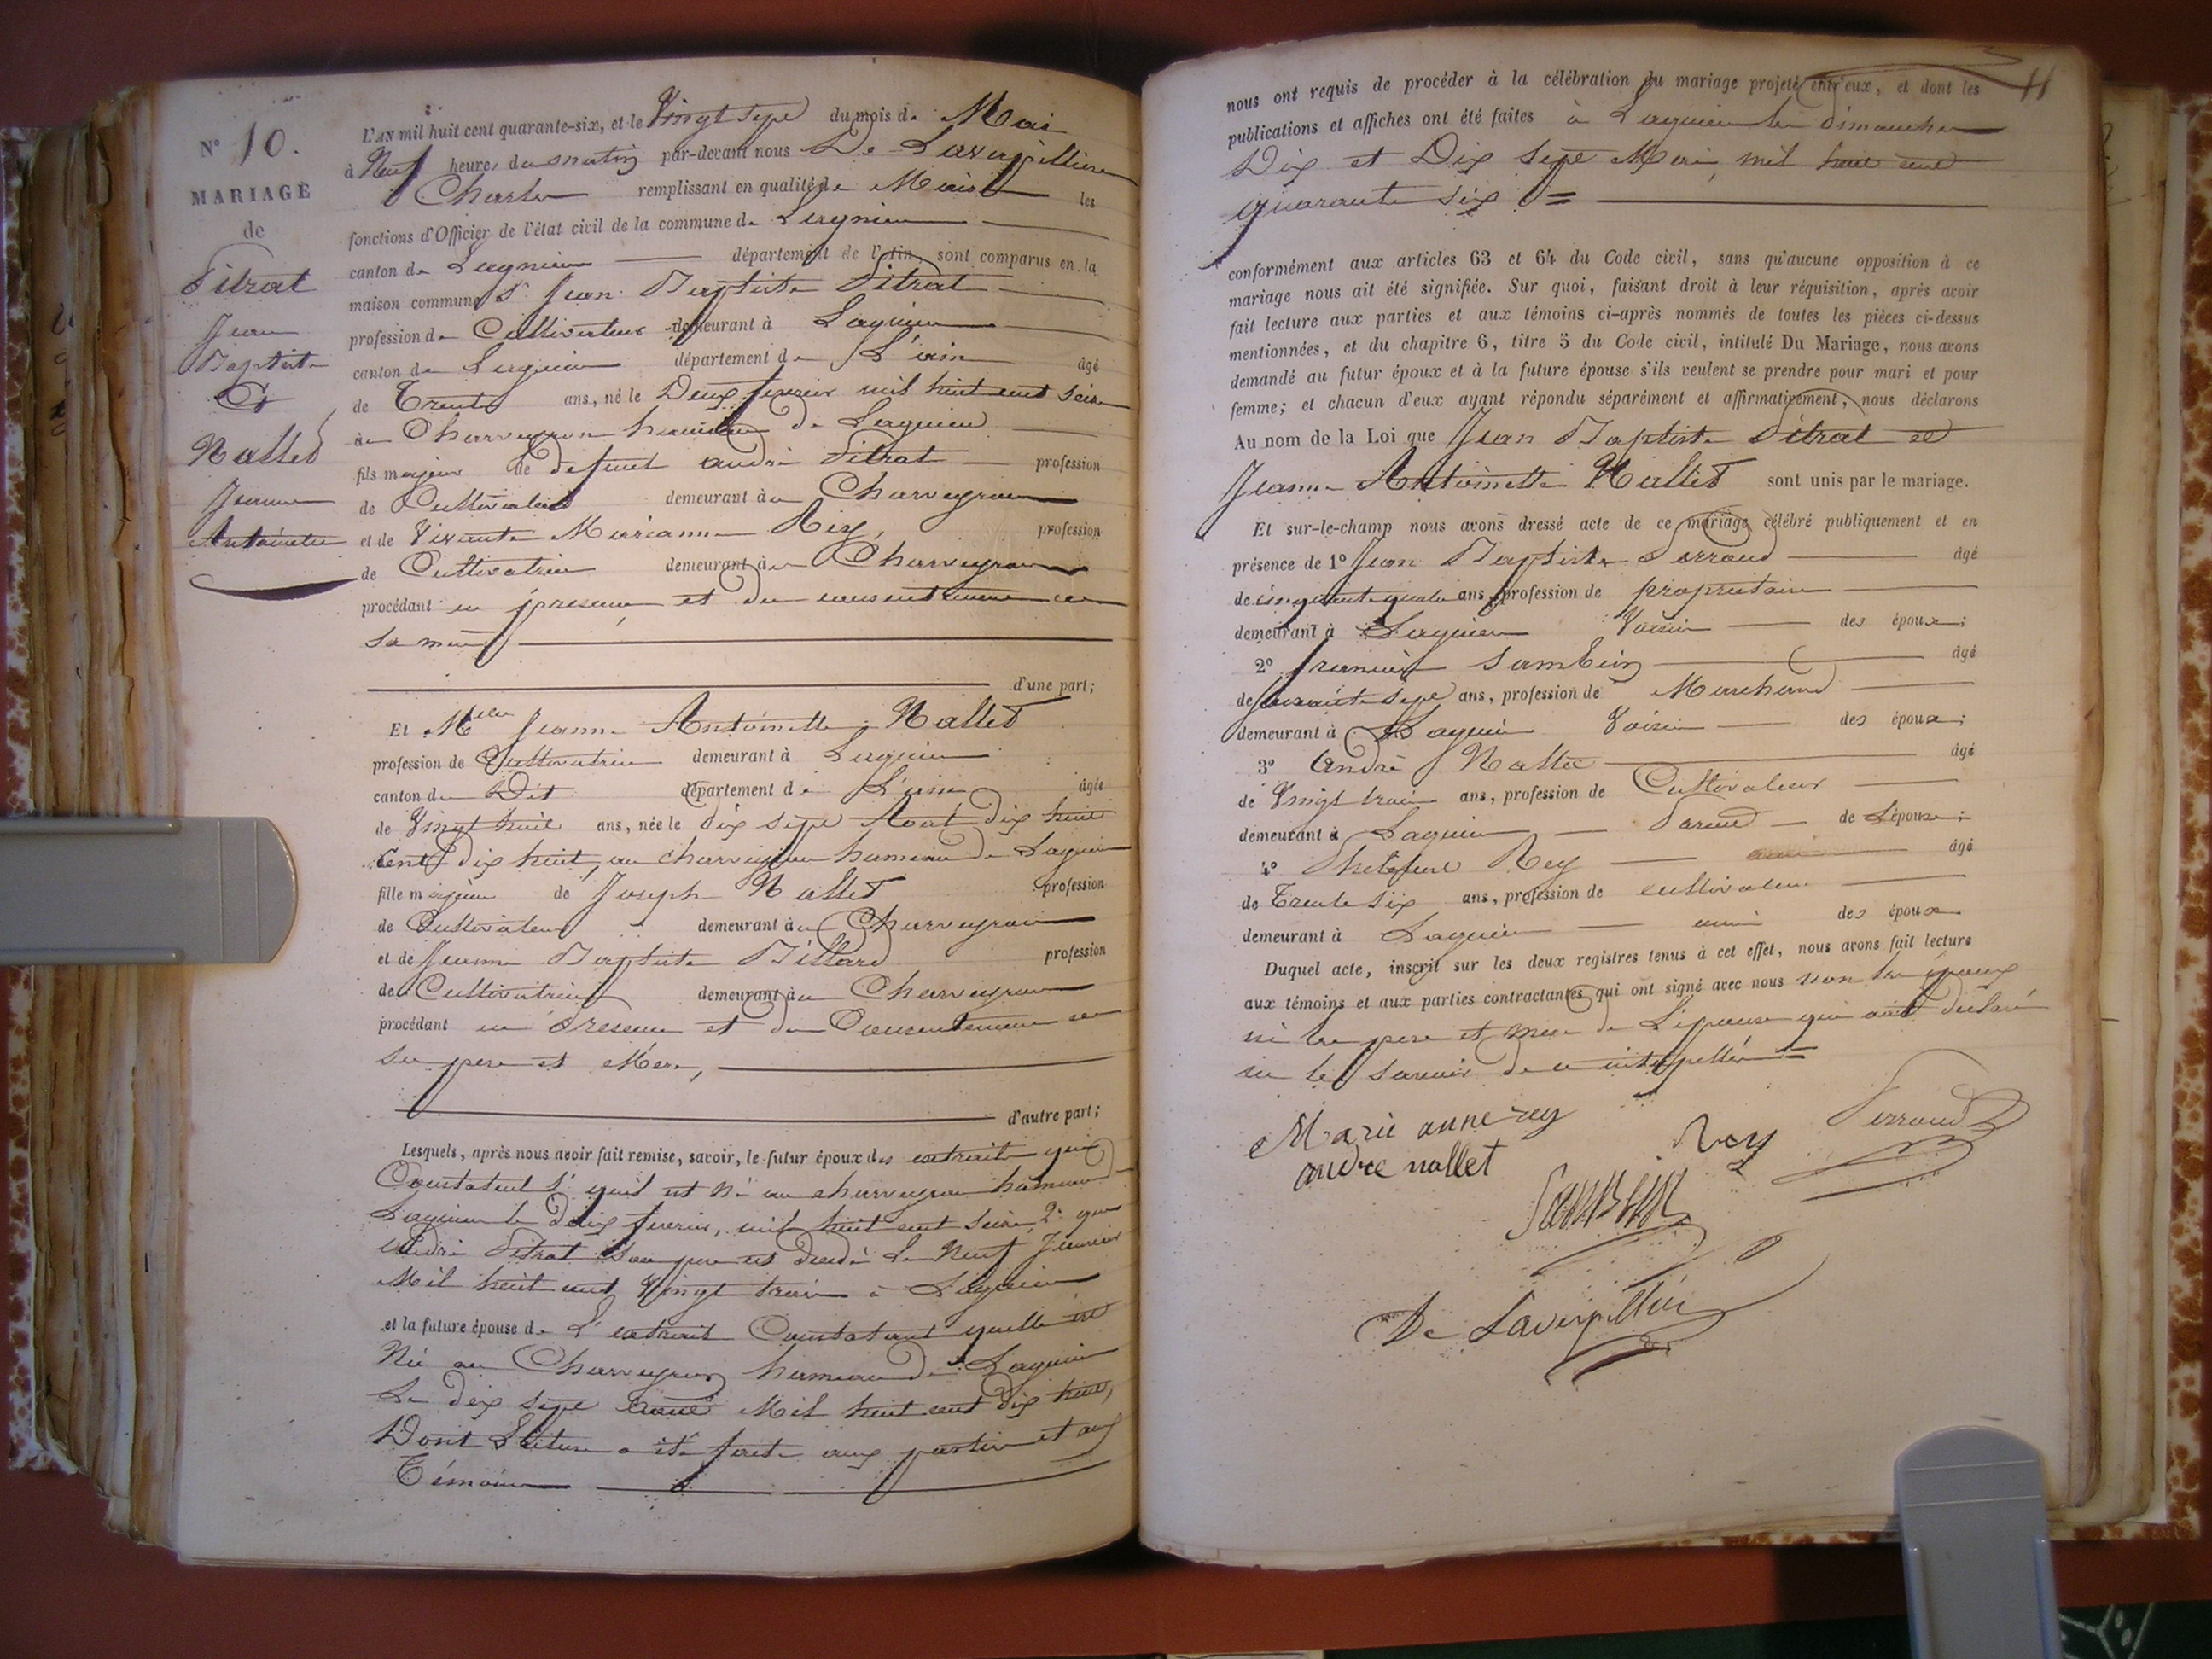 N° 10.
MARIAGE
de
Pitrat
Jean
Baptiste
Et
Nallet
Jeanne
Antoinette
L'AN mil huit cent quarante-six, et le Vingt sept du mois de Mai
à Neuf heures du matin par-devant nous De Laverpilliere
Charles remplissant en qualité de Maire les
fonctions d'Officier de l'état civil de la commune de Lagnieu
canton de Lagnieu département de l'Ain, sont comparus en la
maison commune Sr Jean Baptiste Pitrat
profession de Cultivateur demeurant à Lagnieu
canton de Lagnieu département de L'ain âgé
de Trente ans, né le Deux fevrier mil huit cent seize
au Charveyron hameau de Lagnieu
fils majeur de defunt andré Pitrat profession
de Cultivateur demeurant au Charveyron
et de Vivante Marianne Rey, profession
de Cultivatrice demeurant au Charveyron
procédant en presence et du consentement de
sa mere
d'une part;
Et Melle Jeanne Antoinette Nallet
profession de Cultivatrice demeurant à Lagnieu
canton du Dit département de L'ain âgée
de Vingt huit ans, née le dix sept Aout dix huit
Cent dix huit, au charveyron hameau de Lagnieu
fille majeure de Joseph Nallet profession
de Cultivateur demeurant au Charveyron
et de Jeanne Baptiste Billard profession
de Cultivatrice demeurant au Charveyron
procédant en Presence et du Consentement de
ses pere et Mere,
d'autre part;
Lesquels, après nous avoir fait remise, savoir, le futur époux des extraits qui
Constatent 1° quil est né au charveyron hameau
Lagnieu le deux fevrier, mil huit cent seize 2° que
andré Pitrat son pere est decedé le Neuf Janvier
Mil huit cent Vingt trois à Lagnieu
et la future épouse de L'extrait Constatant quelle est
Née au Charveyron hameau de Lagnieu
Le dix sept aout Mil huit cent dix huit,
Dont Lecture a été faite aux parties et aux
Témoins
11
nous ont requis de procéder à la célébration du mariage projeté entr'eux, et dont les
publications et affiches ont été faites à Lagnieu les dimanches
Dix et Dix sept Mai, mil huit cent
quarante six
conformément aux articles 63 et 64 du Code civil, sans qu'aucune opposition à ce
mariage nous ait été signifiée. Sur quoi, faisant droit à leur réquisition, après avoir
fait lecture aux parties et aux témoins ci-après nommés de toutes les pièces ci-dessus
mentionnées, et du chapitre 6, titre 5 du Code civil, intitulé Du Mariage, nous avons
demandé au futur époux et à la future épouse s'ils veulent se prendre pour mari et pour
femme; et chacun d'eux ayant répondu séparément et affirmativement, nous déclarons
Au nom de la Loi que Jean Baptiste Pitrat et
Jeanne Antoinette Nallet sont unis par le mariage.
Et sur-le-champ nous avons dressé acte de ce mariage célébré publiquement et en
présence de 1° Jean Baptiste Perraud âgé
de cinquante quatre ans, profession de proprietaire
demeurant à Lagnieu Voisin des époux;
2° francois Sambein âgé
de quarante sept ans, profession de Marchand
demeurant à Lagnieu Voisin des époux;
3° André Nallet âgé
de Vingt trois ans, profession de Cultivateur
demeurant à Lagnieu Parent de L'épouse;
4° Rey âgé
de Trente six ans, profession de cultivateur
demeurant à Lagnieu ami des époux
Duquel acte, inscrit sur les deux registres tenus à cet effet, nous avons fait lecture
aux témoins et aux parties contractantes qui ont signé avec nous non les époux
ni les pere et mere de L'épouse qui ont declaré
ne le savoir de ce interpellés
Marie anne rey
andre nallet
Rey
Perraud
SamBein
De Laverpilliere